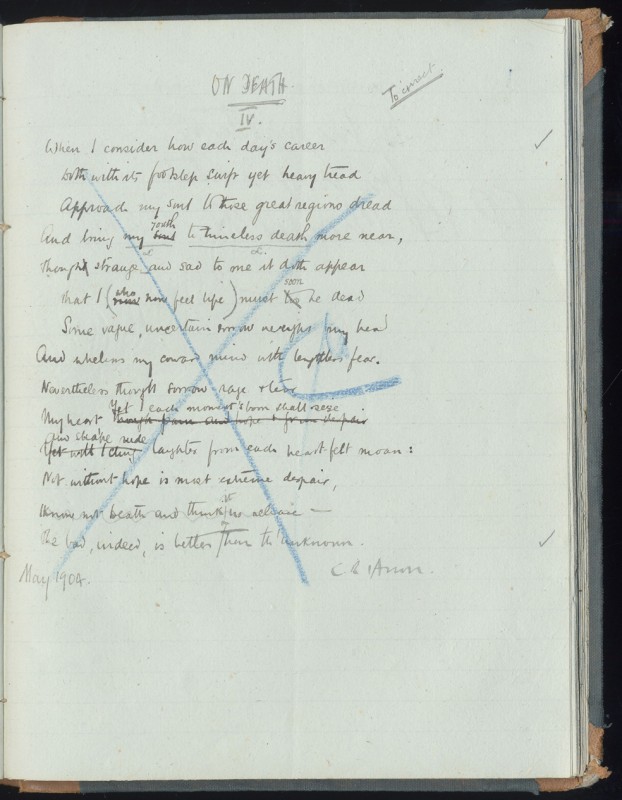 ON DEATH
To correct.
IV.
When I consider how each day's career
Doth with its footstep swift yet heavy tread
Approach my soul to those great regions dread
youth
And bring my soul to timeless death more near,
Though strange and sad to one it doth appear
who soon
that I (now feel life) must be dead
Some vague, uncertain sorrow weighs my head
And whelms my coward mind with lengthless fear.
Nevertheless though sorrow rage &
Yet each moment's born shall seize
My heart though pain and hope & from despair
And shake rude
Yet will I cling laughter from each heart felt moan:
Not without hope is most extreme despair,
it
I know not Death and think the release —
The bad, indeed, is better than th' unknown.
May 1904.
C. R. Anon.